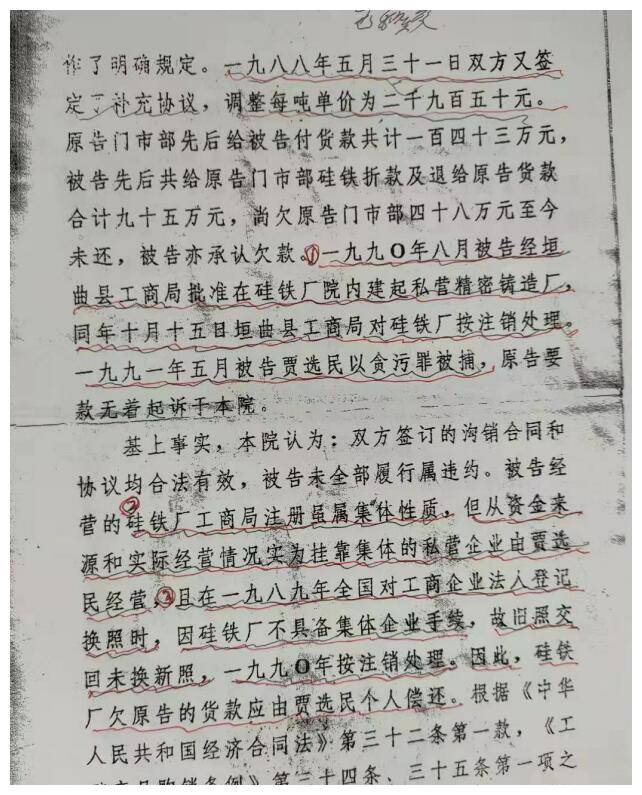 作了明确规定。一九八八年五月三十一日双方又签
定了补充协议，调整每吨单价为二千九百五十元。
原告门市部先后给被告付货款共计一百四十三万元，
被告先后共给原告门市部硅铁折款及退给原告货款
合计九十五万元，尚欠原告门市部四十八万元至今
未还，被告亦承认欠款。①一九九〇年八月被告经垣
曲县工商局批准在硅铁厂院内建起私营精密铸造厂，
同年十月十五日垣曲县工商局对硅铁厂按注销处理。
一九九一年五月被告贾选民以贪污罪被捕，原告要
款无着起诉于本院。
基上事实，本院认为：双方签订的沟销合同和
协议均合法有效，被告未全部履行属违约。被告经
营的②硅铁厂工商局注册虽属集体性质，但从资金来
源和实际经营情况实为挂靠集体的私营企业由贾选
民经营，③且在一九八九年全国对工商企业法人登记
换照时，因硅铁厂不具备集体企业手续，故旧照交
回未换新照，一九九〇年按注销处理。因此，硅铁
厂欠原告的货款应由贾选民个人偿还。根据《中华
人民共和国经济合同法》第三十二条第一款，《工
矿产品购销条例》第三十四条、三十五条第一项之